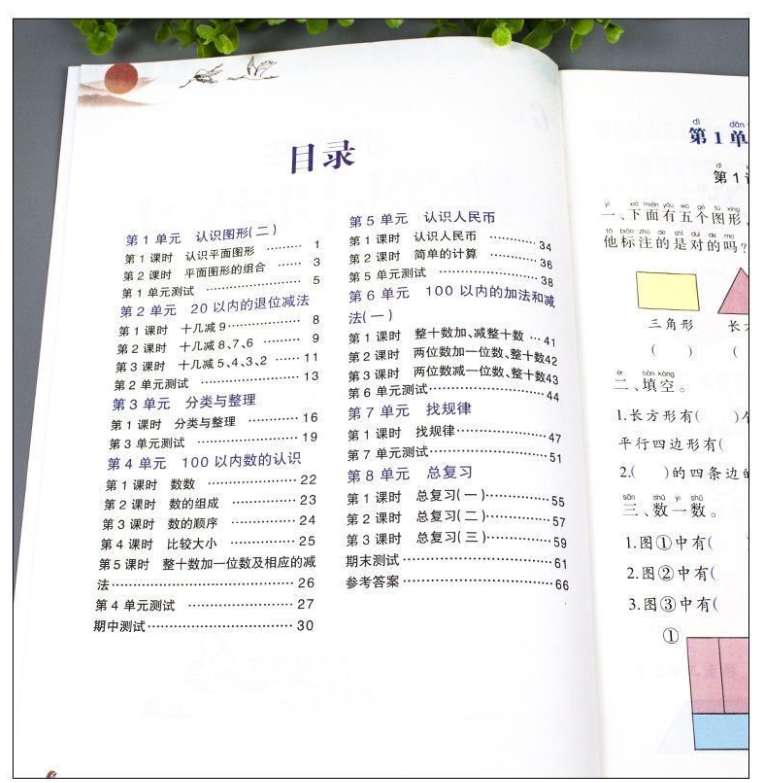 目录
第1单元 认识图形(二)
第1课时 认识平面图形 ……… 1
第2课时 平面图形的组合 …… 3
第1单元测试 ……………… 5
第2单元 20以内的退位减法
第1课时 十几减9……………… 8
第2课时 十几减8、7、6 ……… 9
第3课时 十几减5、4、3、2 …… 11
第2单元测试 ……………… 13
第3单元 分类与整理
第1课时 分类与整理 ………… 16
第3单元测试 ……………… 19
第4单元 100以内数的认识
第1课时 数数 ……………… 22
第2课时 数的组成 ………… 23
第3课时 数的顺序 ………… 24
第4课时 比较大小 ………… 25
第5课时 整十数加一位数及相应的减
法……………………………… 26
第4单元测试 ……………… 27
期中测试……………………… 30
第5单元 认识人民币
第1课时 认识人民币 ……… 34
第2课时 简单的计算 ……… 36
第5单元测试 ……………… 38
第6单元 100以内的加法和减
法(一)
第1课时 整十数加、减整十数 … 41
第2课时 两位数加一位数、整十数42
第3课时 两位数减一位数、整十数43
第6单元测试………………… 44
第7单元 找规律
第1课时 找规律……………… 47
第7单元测试………………… 51
第8单元 总复习
第1课时 总复习(一)………… 55
第2课时 总复习(二)………… 57
第3课时 总复习(三)………… 59
期末测试……………………… 61
参考答案……………………… 66
dì dān
第1单
第1
一、下面有五个图形,
他标注的是对的吗?
三角形 长
( ) (
二、填空。
1.长方形有( )
平行四边形有(
2.( )的四条边
sān shǔ yi shǔ
三、数一数。
1.图①中有(
2.图②中有(
3.图③中有(
①